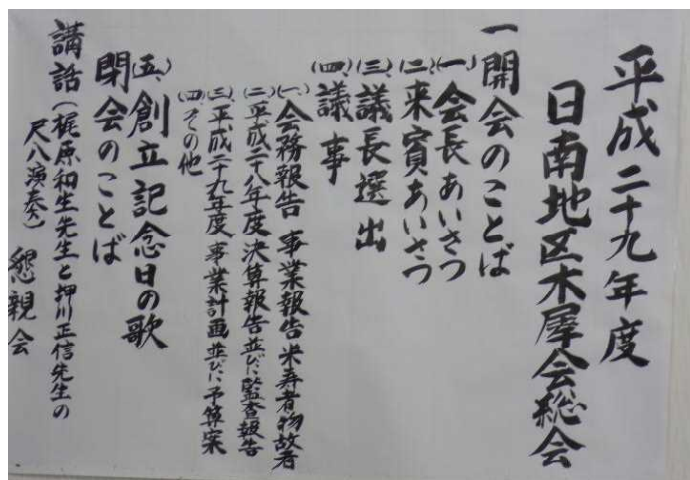 平成二十九年度
日南地区木犀会総会
一開会のことば
(一)会長あいさつ
(二)来賓あいさつ
(三)議長選出
(四)議事
(一)会務報告 事業報告米寿者物故者
(二)平成二十八年度決算報告並びに監査報告
(三)平成二十九年度事業計画並びに予算案
(四)その他
(五)創立記念日の歌
閉会のことば
講話(梶原和生先生と押川正信先生の
尺八演奏) 懇親会